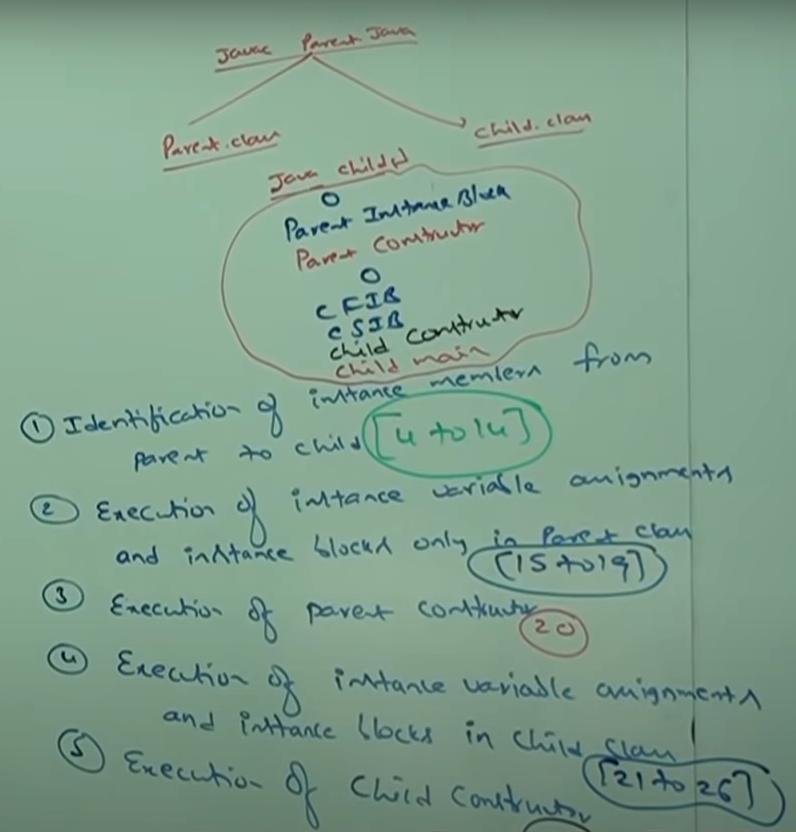 Javac Parent.Java
Parent.class
child.class
Java child↵
0
Parent Instance Block
Parent Constructor
0
CFIB
CSIB
child Constructor
child main
① Identification of instance members from
parent to child [4 to 14]
② Execution of instance variable assignments
and instance blocks only in Parent class
[15 to 19]
③ Execution of parent constructor
20
④ Execution of instance variable assignments
and instance blocks in child class
[21 to 26]
⑤ Execution of child constructor